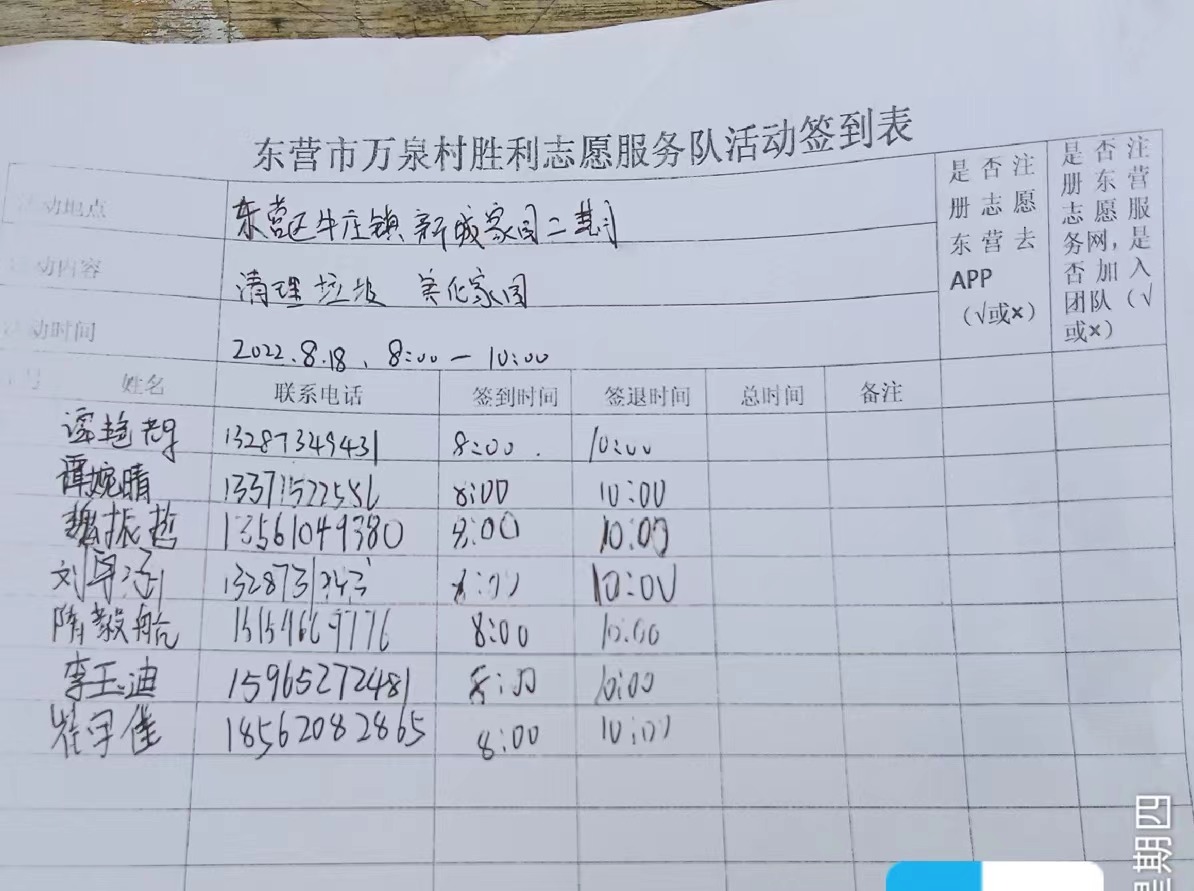 东营市万泉村胜利志愿服务队活动签到表
活动地点 东营区牛庄镇新城家园二期
活动内容 清理垃圾 美化家园
活动时间 2022.8.18、8:00—10:00
是否注册志愿东营去APP(√或×)
是否注册东营志愿服务网,是否加入团队(√或×)
姓名 联系电话 签到时间 签退时间 总时间 备注
13287349431 8:00 10:00
谭婉晴 13371522586 8:00 10:00
魏振哲 13561049380 8:00 10:00
刘 8:00 10:00
隋毅航 15154669776 8:00 10:00
李玉迪 15965272481 8:00 10:00
崔宇佳 18562082865 8:00 10:00
星期四